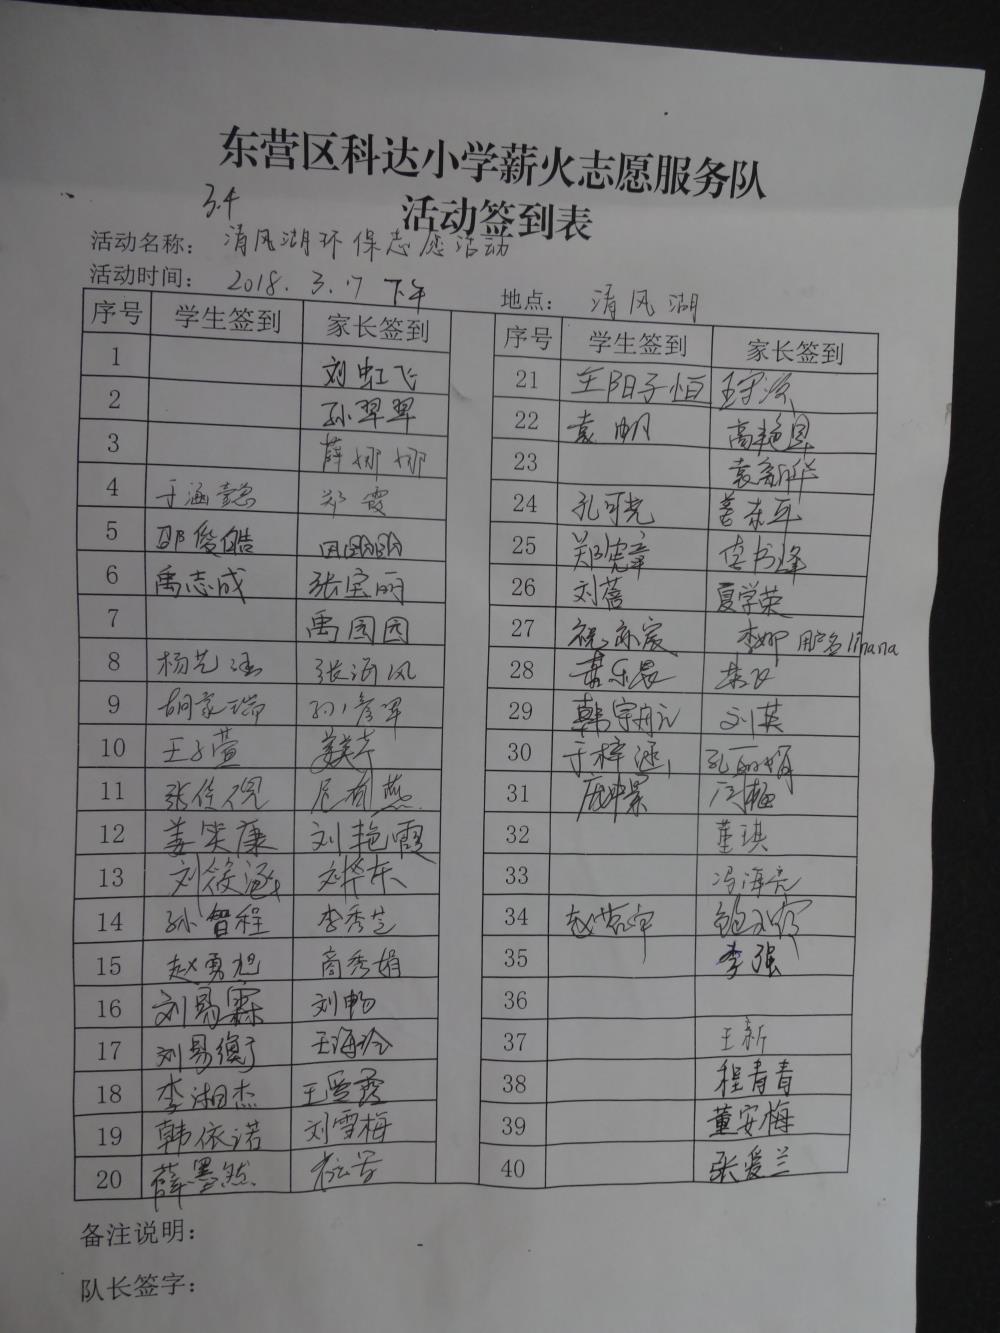 东营区科达小学薪火志愿服务队
3.4
活动签到表
活动名称： 清风湖环保志愿活动
活动时间： 2018.3.17 下午 地点： 清风湖
序号 学生签到 家长签到 序号 学生签到 家长签到
1 刘虹飞 21 王阳子恒
2 孙翠翠 22 袁帆
3 薛娜娜 23
4 于涵懿 郑霞 24 孔可尧
5 邵俊皓 25 郑宪章
6 禹志成 张宝丽 26 刘蓓 夏学荣
7 禹园园 27 李娜 用户名linana
8 杨艺涵 张海风 28
9 胡家瑞 孙彦军 29 刘英
10 王子萱 姜美芹 30 于梓涵 孔丽娟
11 尼有燕 31 闫梅
12 姜笑康 刘艳霞 32 董琪
13 刘筱涵 刘华东 33 冯海亮
14 孙智程 李秀芝 34
15 赵勇旭 商秀娟 35 李强
16 刘易霖 刘畅 36
17 刘易衡 王海玲 37 王新
18 李湘杰 王爱霞 38 程青青
19 韩依诺 刘雪梅 39 董安梅
20 薛墨然 40 张爱兰
备注说明：
队长签字：